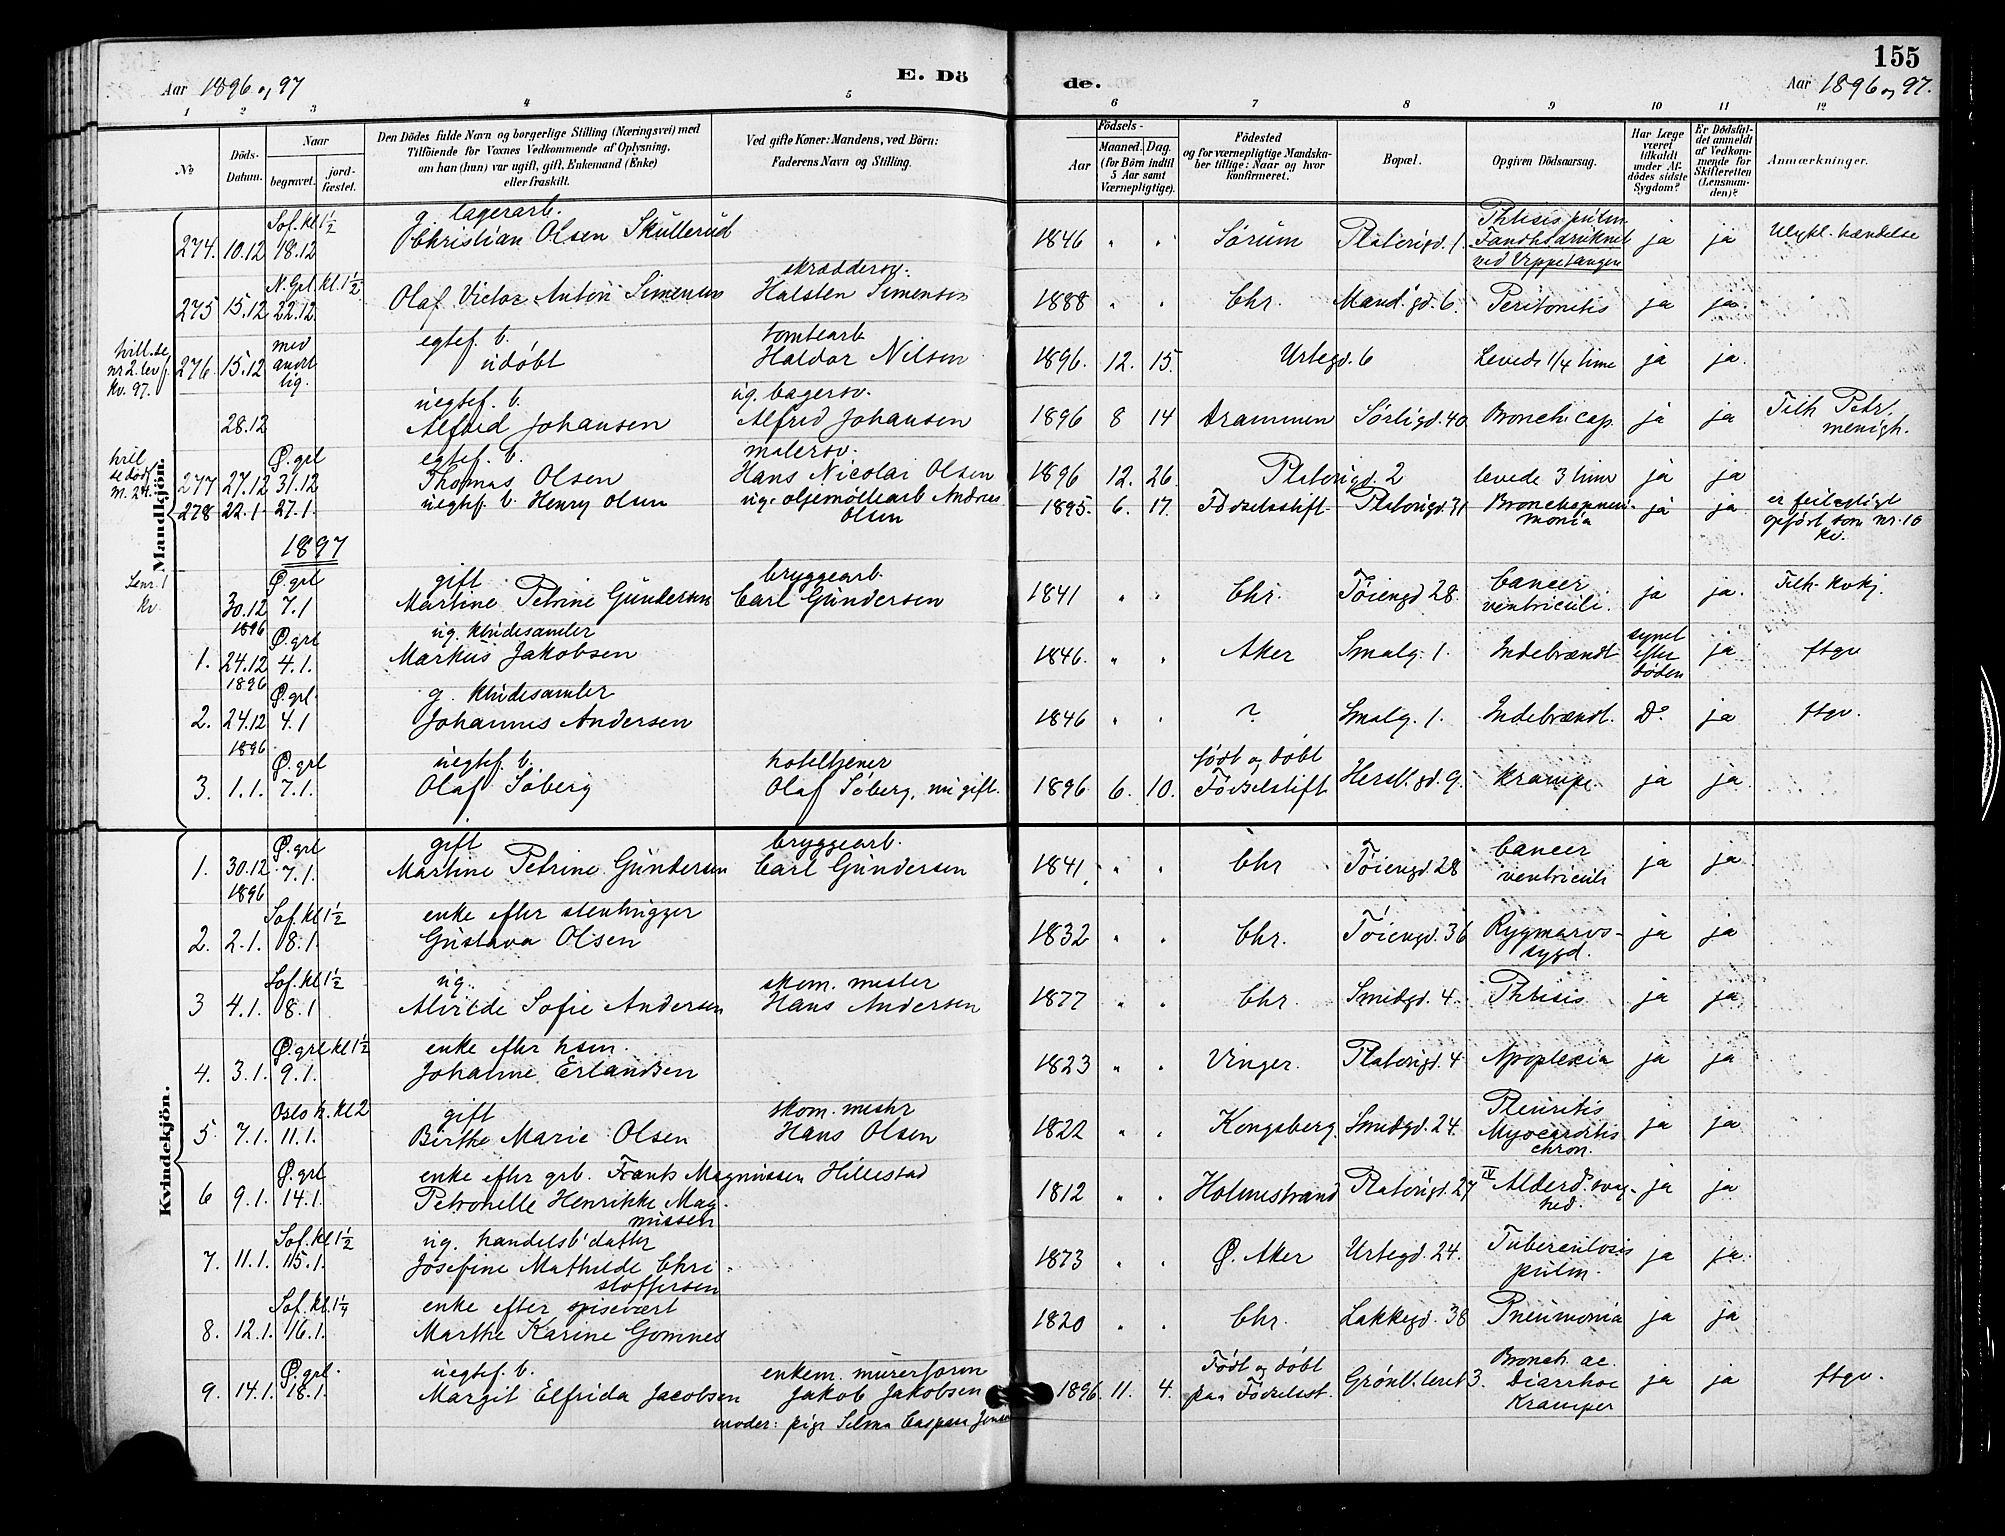 155
Aar 1896 og 97
E. Dö
de.
Aar 1896 og 97.
1 2 3 4 5 6 7 8 9 10 11 12
No
Döds-Datum.
Naar
begravet.
jord-fæstet.
Den Dödes fulde Navn og borgerlige Stilling (Næringsvei) med
Tilföiende for Voxnes Vedkommende af Oplysning,
om han (hun) var ugift, gift, Enkemand (Enke)
eller fraskilt.
Ved gifte Koner: Mandens, ved Börn:
Faderens Navn og Stilling.
Födsels-
Aar
Maaned. Dag.
(for Börn indtil
5 Aar samt
Værnepligtige).
Födested
og for værnepligtige Mandska-
ber tillige: Naar og hvor
konfirmeret.
Bopæl.
Opgiven Dödsaarsag.
Har Læge
været
tilkaldt
under Af-
dödes sidste
Sygdom?
Er Dödsfal-
det anmeldt
af Vedkom-
mende for
Skifteretten
(Lensman-
den)?
Anmærkninger.
Mandkjön.
Sof. kl 1½
g. lagerarb.
Phtisis pulm
274. 10.12 18.12 Christian Olsen Skullerud 1846 " " Sørum Platerigd. 1 Fandtes druknet ja ja Ulykl. hændelse
ved Vippetangen
N. Grl. kl. 1½
skræddersv.
275 15.12 22.12 Olaf Victor Anton Simensen Halsten Simensen 1888 " " Chr. Mand. gd. 6. Peritonitis ja ja.
med
egtef. b.
tomtearb
276. 15.12 andt lig. udöbt Haldor Nilsen 1896. 12. 15. Urtegd. 6 Levede 1/4 time ja ja.
tvill. se
nr 2. lev f.
Kv. 97.
uegtef. b.
ug. bagersv.
28.12 Alfred Johansen Alfred Johansen 1896 8 14 Drammen Sørligd. 40 Bronch cap. ja ja Tilh Petri
menigh.
Ø. grl
egtef. b.
malersv.
277 27.12 31.12 Thomas Olsen Hans Nicolai Olsen 1896 12. 26. Platerigd. 2 levede 3 timer ja ja
278 22.1 27.1. uegtef. b. Henry Olsen ug. oljemöllearb Andreas Olsen 1895. 6. 17. Fødselsstift. Platerigd. 31 Bronchopneu-
monia ja ja er feilagtigt
opfört som nr. 10
kv.
1897
Se nr. 1
Kv.
Ø. grl
gift
bryggearb.
30.12 7.1 Martine Petrine Gundersen Carl Gundersen 1841 " " Chr. Tøiengd 28. Cancer
ventriculi. ja ja. Tilh. kvkj.
1896
Ø. grl
ug. kludesamler
1. 24.12 4.1. Markus Jakobsen 1846. " " Aker Smalg. 1. Indebrændt synet
efter
döden ja ftgv
1896
Ø. grl.
g. kludesamler
2. 24.12 4.1 Johannes Andersen 1846 " " ? Smalg. 1. Indebrændt. Do ja ftgv.
1896
Ø. grl
uegtef. b.
hoteltjener
født og döbt
3. 1.1. 7.1. Olaf Söberg Olaf Söberg, nu gift. 1896 6. 10. Fødselstift Hersl. gd. 9. Krampe ja ja
Kvindekjön.
Ø. grl
gift
bryggearb.
1. 30.12 7.1. Martine Petrine Gundersen Carl Gundersen 1841 " " Chr Tøiengd. 28 Cancer
ventriculi ja ja
1896
Sof. kl 1½
enke efter stenhugger
2. 2.1. 8.1. Gustava Olsen 1832 " " Chr. Tøiengd. 36 Rygmarvs-
sygd. ja ja
Sof. kl 1½
ug.
skom. mester
3 4.1. 8.1 Alvilde Sofie Andersen Hans Andersen 1877 " " Chr. Smedgd. 4. Phtisis ja ja
Ø. grl kl 1½
enke efter hsm.
4. 3.1. 9.1. Johanne Erlandsen 1823 " " Vinger. Platerigd. 4 Apoplexia ja ja
Oslo h. kl 2
gift
skom. mester
5 7.1. 11.1. Birthe Marie Olsen Hans Olsen 1822 " " Kongsberg. Smedgd. 24. Pleuritis
Myocarditis
chron. ja ja
Ø. grl
enke efter grb. Frants Magnussen Hillestad
6 9.1. 14.1. Petronelle Henrikke Mag-
nussen 1812 " " Holmestrand Platerigd. 27 IV Alderd. svag-
hed. ja ja
Sof. kl 1½
ug. handelsb' datter
7. 11.1. 15.1. Josefine Mathilde Chri-
stoffersen 1873 " " Ø. Aker Urtegd. 24. Tuberculosis
pulm. ja ja.
Sof. kl. 1¼
enke efter spisevært
8. 12.1. 16.1. Marthe Karine Gomnes 1820 " " Chr. Lakkegd. 38 Pneumonia ja ja
Ø. grl.
uegtef. b.
enkem. murerform
Født og döbt
9. 14.1. 18.1. Margit Elfrida Jacobsen Jakob Jakobsen 1896. 11. 4. paa Fødselsst. Grønl. leret 3. Bronch. ac.
Diarrhoe
Kramper ja ja ftgv.
moder: pige Selma Caspara Jensen